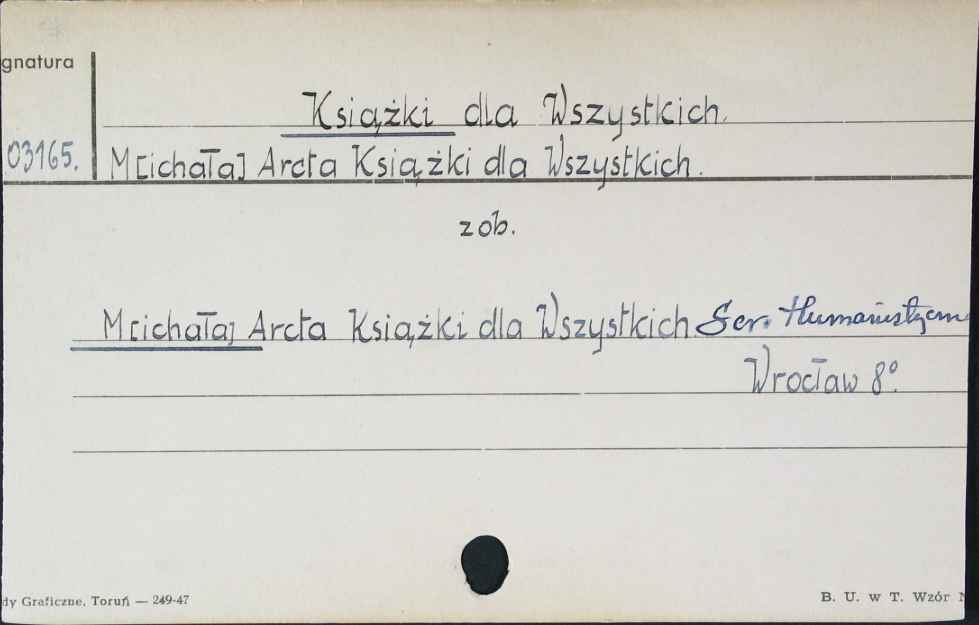 gnatura
Książki dla Wszystkich.
03165. M[ichała] Arcta Książki dla Wszystkich.
zob.
M[ichała] Arcta Książki dla Wszystkich Ser. Humanistyczn
Wrocław 8°.
dy Graficzne, Toruń — 249-47
B. U. w T. Wzór N